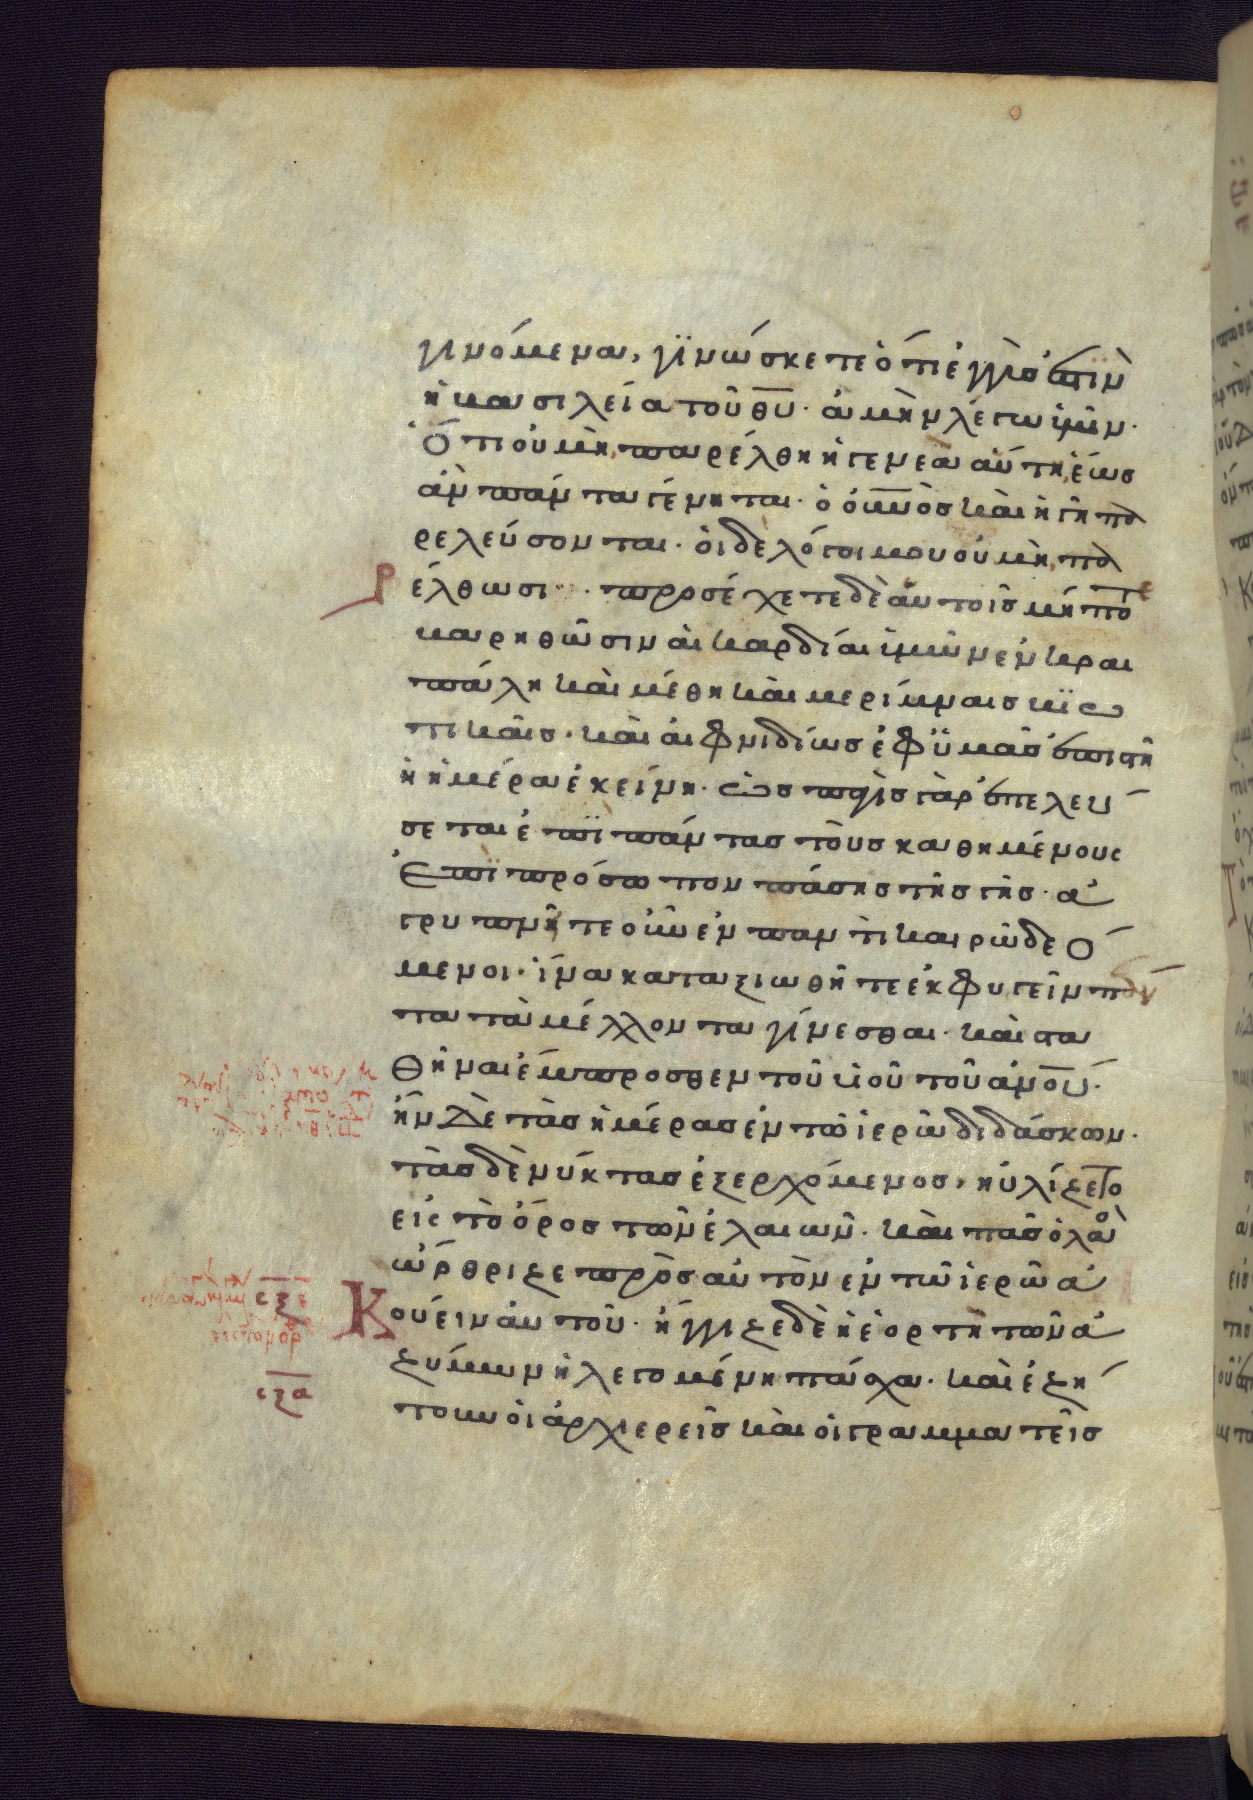 γινόμενα, γϊνώσκετε ὅτι ἐγγύς ἐστιν
ἡ βασιλεία τοῦ θ̅υ̅· ἀμὴν λέγω ὑμῖν·
Ὅτι οὐ μὴ παρέλθη ἡ γενεὰ αὕτη, ἕως
ἂν πάντα γένηται· ὁ ο̅υ̅ν̅ο̅ς καὶ ἡ γῆ πα
ρελεύσονται· οἱ δὲ λόγοι μου οὐ μὴ πα
ρέλθωσι· προσέχετε δὲ ἑαυτοῖς μήποτε
βαρηθῶσιν αἱ καρδίαι ὑμῶν ἐν κραι
πάλη καὶ μέθη καὶ μερίμναις βϊω
τικαῖς· καὶ αἰφνιδίως ἐφ' ὑμᾶς ἐπιστῆ
ἡ ἡμέρα ἐκείνη· ὡς παγὶς γὰρ ἐπελεύ
σεται ἐπὶ πάντας τοὺς καθημένους
ἐπὶ πρόσωπον πάσης τῆς γῆς· ἀ
γρυπνῆτε οὖν ἐν παντὶ καιρῶ δεό
μενοι· ἵνα καταξιωθῆτε ἐκφυγεῖν πάν
τα τὰ μέλλοντα γίνεσθαι· καὶ στα
θῆναι ἔμπροσθεν τοῦ υἱοῦ τοῦ α̅ν̅ο̅υ̅·
ἦν δὲ τὰς ἡμέρας ἐν τῶ ἱερῶ διδάσκων·
τὰς δὲ νύκτας ἐξερχόμενος, ηὐλίζετο
εἰς τὸ ὄρος τῶν ἐλαιῶν· καὶ πᾶς ὁ λαὸς
ὤρθριζε πρὸς αὐτὸν ἐν τῶ ἱερῶ ἀ
Κούειν αὐτοῦ· ἤγγιζε δὲ ἡ ἑορτὴ τῶν ἀ
ζύμων ἡ λεγομένη πάσχα· καὶ ἐζή
τουν οἱ ἀρχιερεῖς καὶ οἱ γραμματεῖς
σ̅ξ̅
σ̅ξ̅α̅